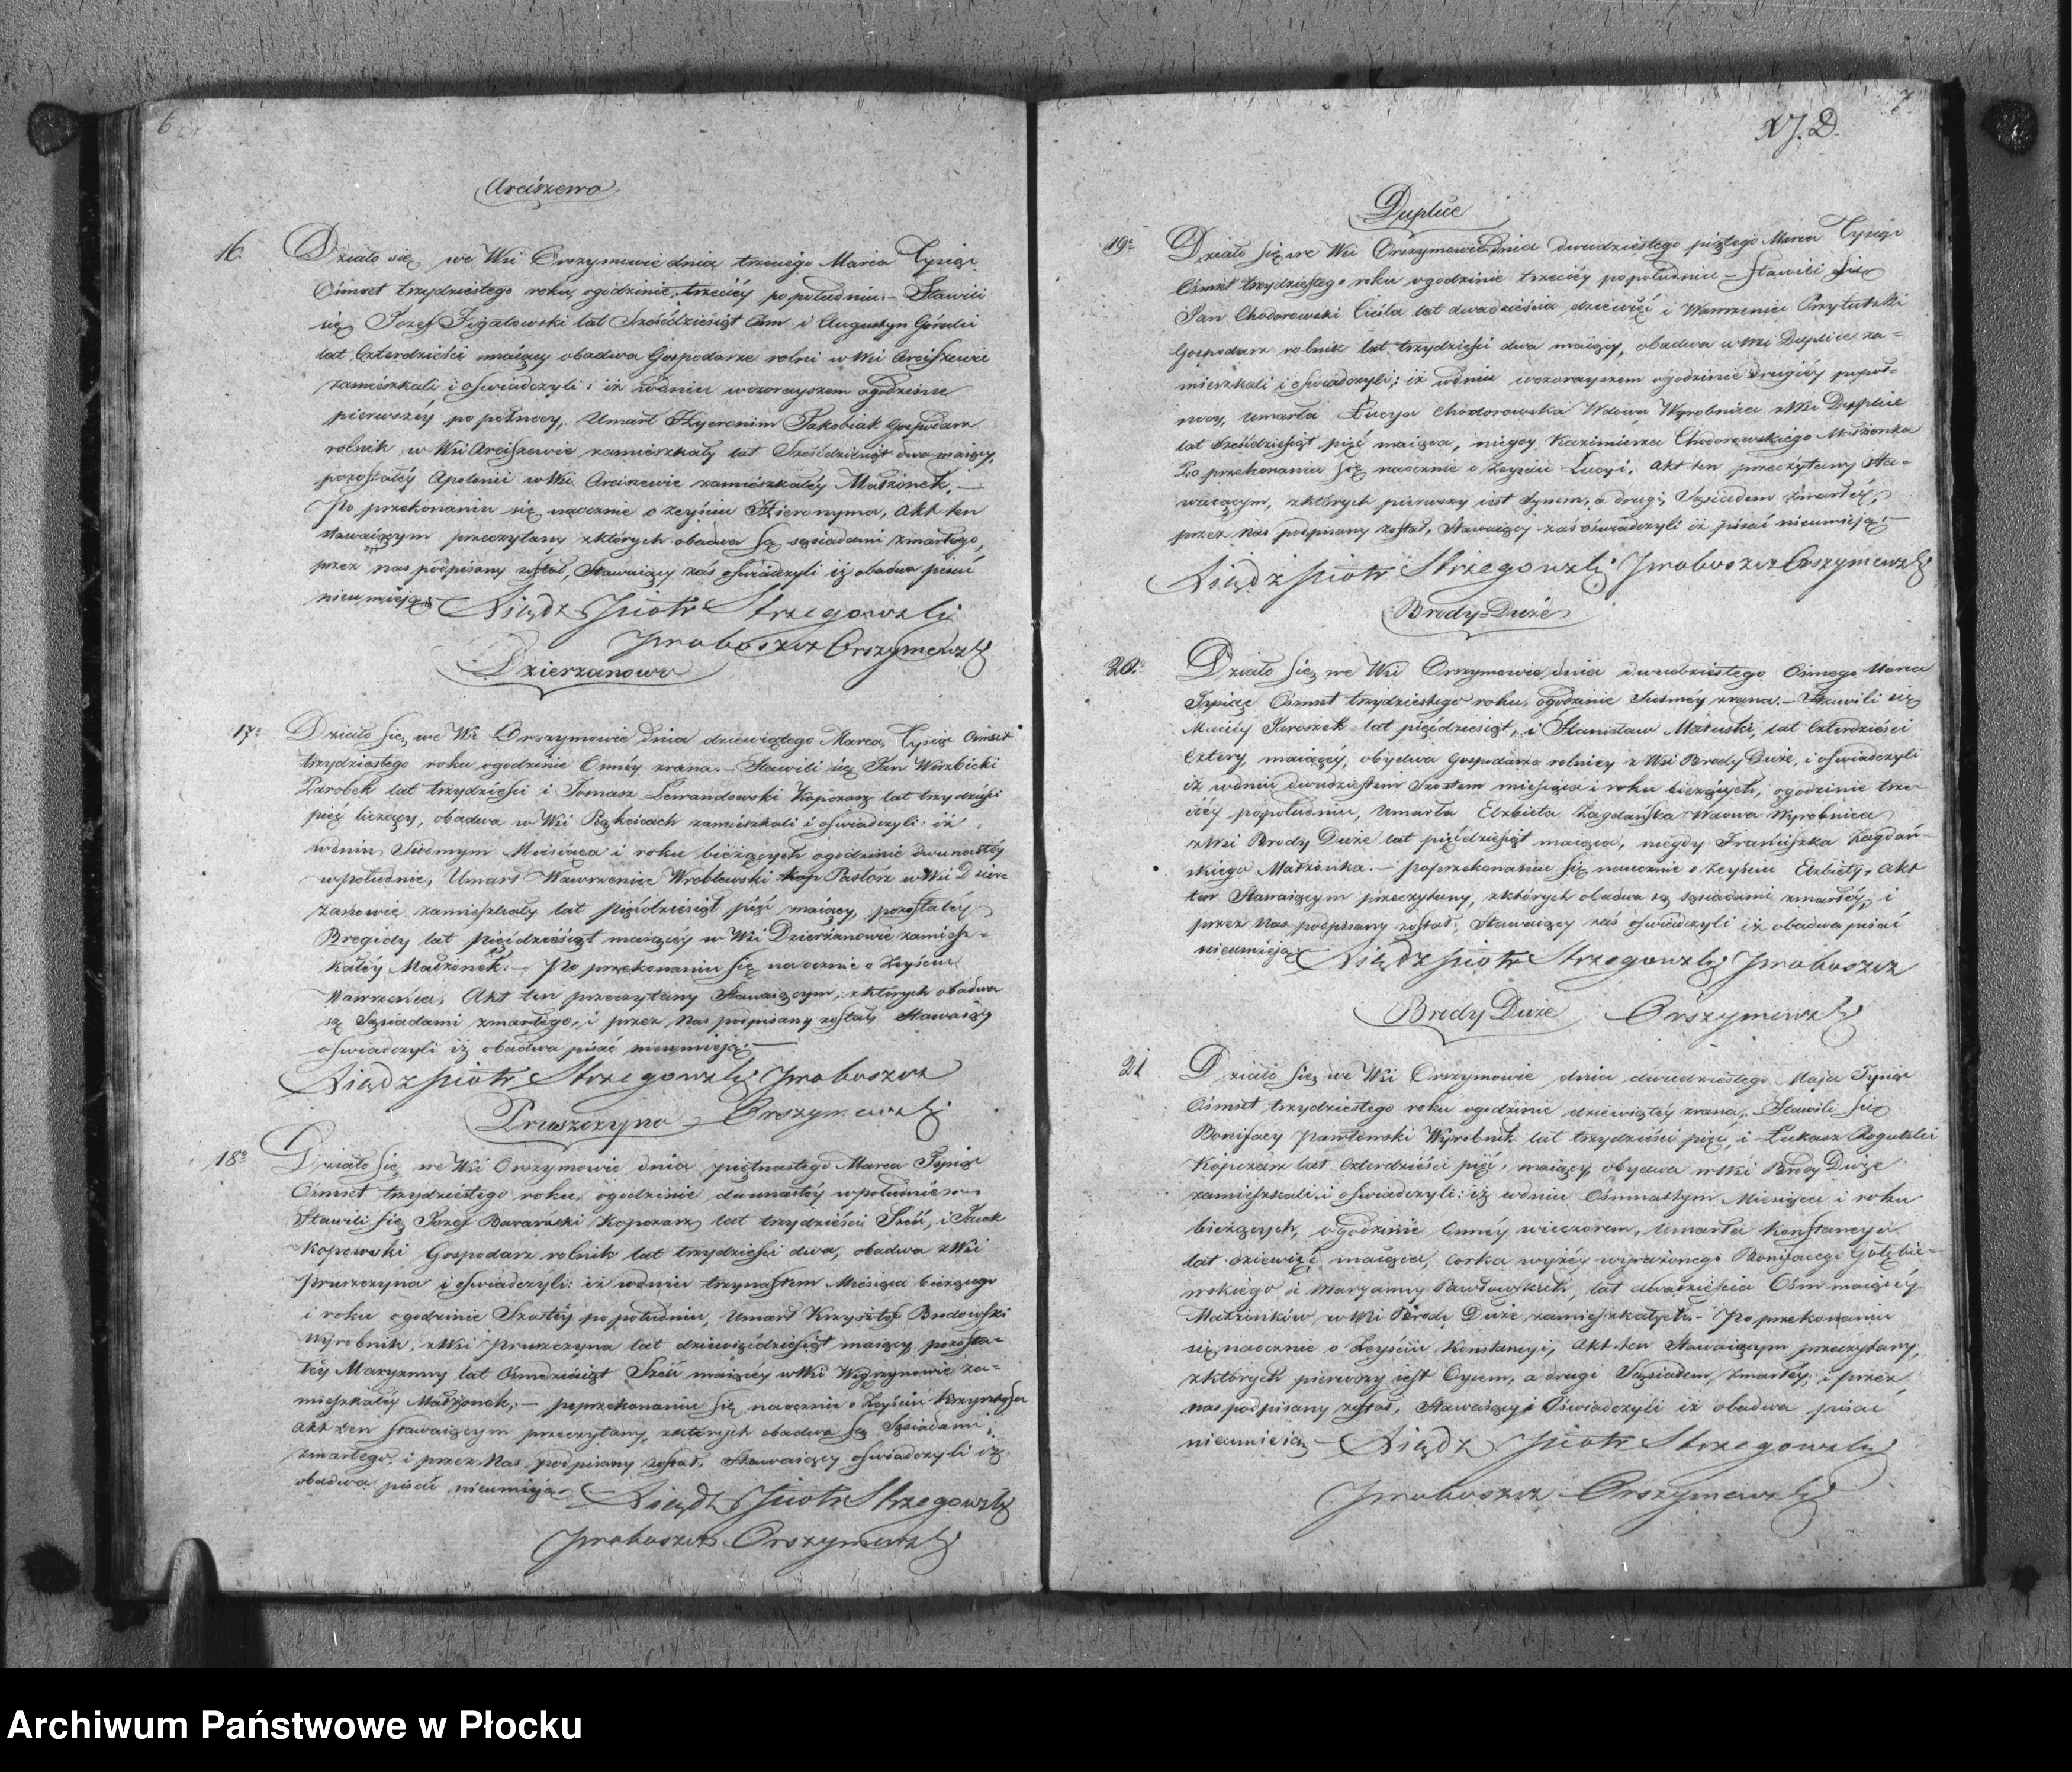 6
Arciszewo
16. Działo się we Wsi Orszymowie dnia trzeciego Marca Tysiąc
Ośmset trzydziestego roku, ogodzinie trzeciéy popołudniu. – Stawili
się Jozef Figatowski lat Sześćdziesiąt Ośm i Augustyn Górecki
lat Czterdzieści maiący obadwa Gospodarze rolni w Wsi Arciszewie
zamieszkali i oświadczyli: iż wdniu wczorayszem ogodzinie
pierwszéy po północy, Umarł Hyeronim Jakobiak Gospodarz
rolnik w Wsi Arciszewie zamieszkały lat Sześćdziesiąt dwa maiący,
pozostałéy Apolonii w Wsi Arciszewie zamieszkałéy Małżonek. –
Po przekonaniu się naocznie o zeyściu Hieronyma, Akt ten
stawaiącym przeczytany których obadwa są sąsiadami zmarłego,
przez nas podpisany został, Stawaiący zaś oświadczyli iż obadwa pisać
nieumieją. Xiądz Piotr Strzegowski
Proboszcz Orszymowski
Dzierzanowo
17. Działo się we Wsi Orszymowie dnia dziewiątego Marca, Tysiąc Ośmset
trzydziestego roku ogodzinie Osméy zrana. – Stawili się Jan Wierzbicki
Parobek lat trzydzieści i Tomasz Lewandowski Kopczarz lat trzydzieści
pięć liczący, obadwa w Wsi zamieszkali i oświadczyli: iż
wdniu Siódmym Miesiąca i roku bieżących ogodzinie dwunastéy
wpołudnie, Umarł Wawrzeniec Wróblewski Pastérz w Wsi Dzierz
zanowie zamieszkały lat pięćdziesiąt pięć maiący, pozostałéy
Bregidy lat pięćdziesiąt maiącéy w Wsi Dzierżanowie zamiesz-
kałéy Małżonek. – Po przekonaniu się naocznie o Zeyściu
Wawrzeńca, Akt ten przeczytany Stawaiącym, których obadwa
są Sąsiadami zmarłego, i przez Nas podpisany został Stawaiący
oświadczyli iż obadwa pisać nieumieją. –
Xiądz Piotr Strzegowski Proboszcz
Pruszczyno Orszymowski
18. Działo się we Wsi Orszymowie dnia piętnastego Marca Tysiąc
Ośmset trzydziestego roku, ogodzinie dwunastéy wpołudnie
Stawili się Jozef Barański Kopczarz lat trzydzieści Sześć, i Jacek
Kopowski Gospodarz rolnik lat trzydzieści dwa, obadwa z Wsi
Pruszczyna i oświadczyli: iż wdniu trzynastem Miesiąca bieżącego
i roku ogodzinie Szostéy popołudniu, Umarł Krzysztof Brodowski
Wyrobnik, z Wsi Pruszczyna lat dziewięćdziesiąt maiący, pozosta-
łéy Maryanny lat Ośmdziesiąt Sześć maiącéy w Wsi Węgrzynowie za-
mieszkałéy Małżonek, – poprzekonaniu się naocznie o Zeyściu Krzysztofa
Akt ten stawaiącym przeczytany, których obadwa są Sąsiadami
zmarłego, i przez Nas podpisany został, Stawaiący oświadczyli iż
obadwa pisać nieumieją. Xiądz Piotr Strzegowski
Proboszcz Orszymowski
7
Duplice
19. Działo się we Wsi Orszymowie dnia dwudziestego piątego Marca Tysiąc
Ośmset trzydziestego roku ogodzinie trzeciéy popołudniu – Stawili się
Jan Chodorowski Cieśla lat dwadzieścia dziewięć i Wawrzeniec Przytulski
Gospodarz rolnik lat trzydzieści dwa maiący, obadwa w Wsi Duplice za-
mieszkali i oświadczyli; iż wdniu wczorayszem ogodzinie drugiéy popół-
nocy, Umarła Łucya Chodorowska Wdowa Wyrobnica z Wsi Duplic
lat Sześćdziesiąt pięć maiąca, niegdy Kazimierza Chodorowskiego Małżonka
Po przekonaniu się naocznie o Zeyściu Łucyi, Akt ten przeczytany Sta-
waiącym, z których pierwszy iest Synem, a drugi, Sąsiadem Zmarłéy,
przez nas podpisany został, Stawaiący zaś oświadczyli iż pisać nieumieją. –
Xiądz Piotr Strzegowski Proboszcz Orszymowski
Brody Duże
20. Działo się we Wsi Orszymowie dnia dwudziestego Osmego Marca
Tysiąc Ośmset trzydziestego roku, ogodzinie Siódméy zrana. – Stawili się
Maciéy Jaroszek lat pięćdziesiąt, i Stanisław Matuski, lat Czterdzieści
Cztery, maiący, obydwa Gospodarze rolnicy z Wsi Brody Duże, i oświadczyli
iż wdniu dwudziestem Szostem miesiąca i roku bieżących, ogodzinie trze
ciéy popołudniu, Umarła Elzbieta Zagdańska Wdowa Wyrobnica
z Wsi Brody Duże lat pięćdziesiąt maiąca, niegdy Franciszka Zagdań-
skiego Małżonka. – poprzekonaniu się naocznie o Zeyściu Elzbiety, Akt
ten Stawaiącym przeczytany, z których obadwa są sąsiadami zmarłéy, i
przez Nas podpisany został, Stawaiący zaś oświadczyli iż obadwa pisać
nieumieją. Xiądz Piotr Strzegowski Proboszcz
Brody Duże Orszymowski
21 Działo się we Wsi Orszymowie dnia dwudziestego Maja Tysiąc
Ośmset trzydziestego roku ogodzinie dziewiątéy zrana, Stawili się
Bonifacy Pawłowski Wyrobnik lat trzydzieści pięć, i Łukasz Rogulski
Kopczarz lat Czterdzieści pięć, maiący obydwa w Wsi Brody Duże
zamieszkali i oświadczyli: iż wdniu Ośmnastym Miesiąca i roku
bieżących, ogodzinie Osméy wieczorem, Umarła Konstancya
lat dziewięć maiąca, Corka wyżéy wyrażonego Bonifacego Gołębie-
wskiego i Maryanny Pawłowskich, lat dwadzieścia Ośm maiącéy
Małżonków, w Wsi Brody Duże zamieszkałych. – Po przekonaniu
się naocznie o Zeyściu Konstancyi, Akt ten Stawaiącym przeczytany,
z których pierwszy iest Oycem, a drugi Sąsiadem Zmarłéy, i przez
nas podpisany został, Stawaiący Oświadczyli iż obadwa pisać
nieumieią – Xiądz Piotr Strzegowski
Proboszcz Orszymowski
Archiwum Państwowe w Płocku